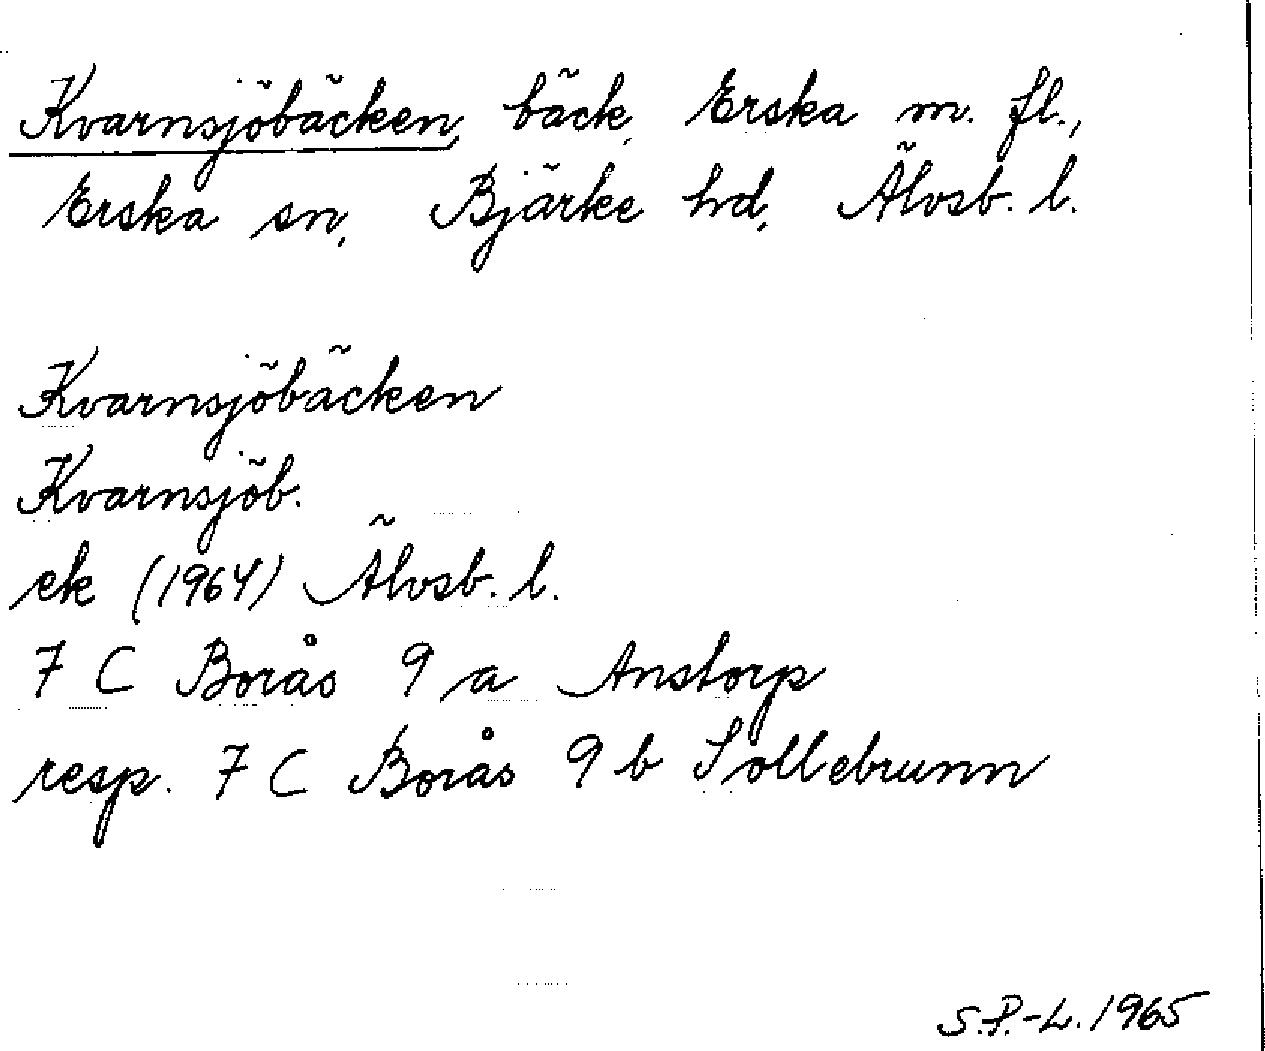 Kvarnsjöbäcken, bäck, Erska m. fl.,
Erska sn, Bjärke hd, Älvsb. l.
Kvarnsjöbäcken
Kvarnsjöb.
ek (1964) Älvsb. l.
7 C Borås 9 a Anstorp
resp. 7 C Borås 9 b Sollebrunn
S.P.-L. 1965